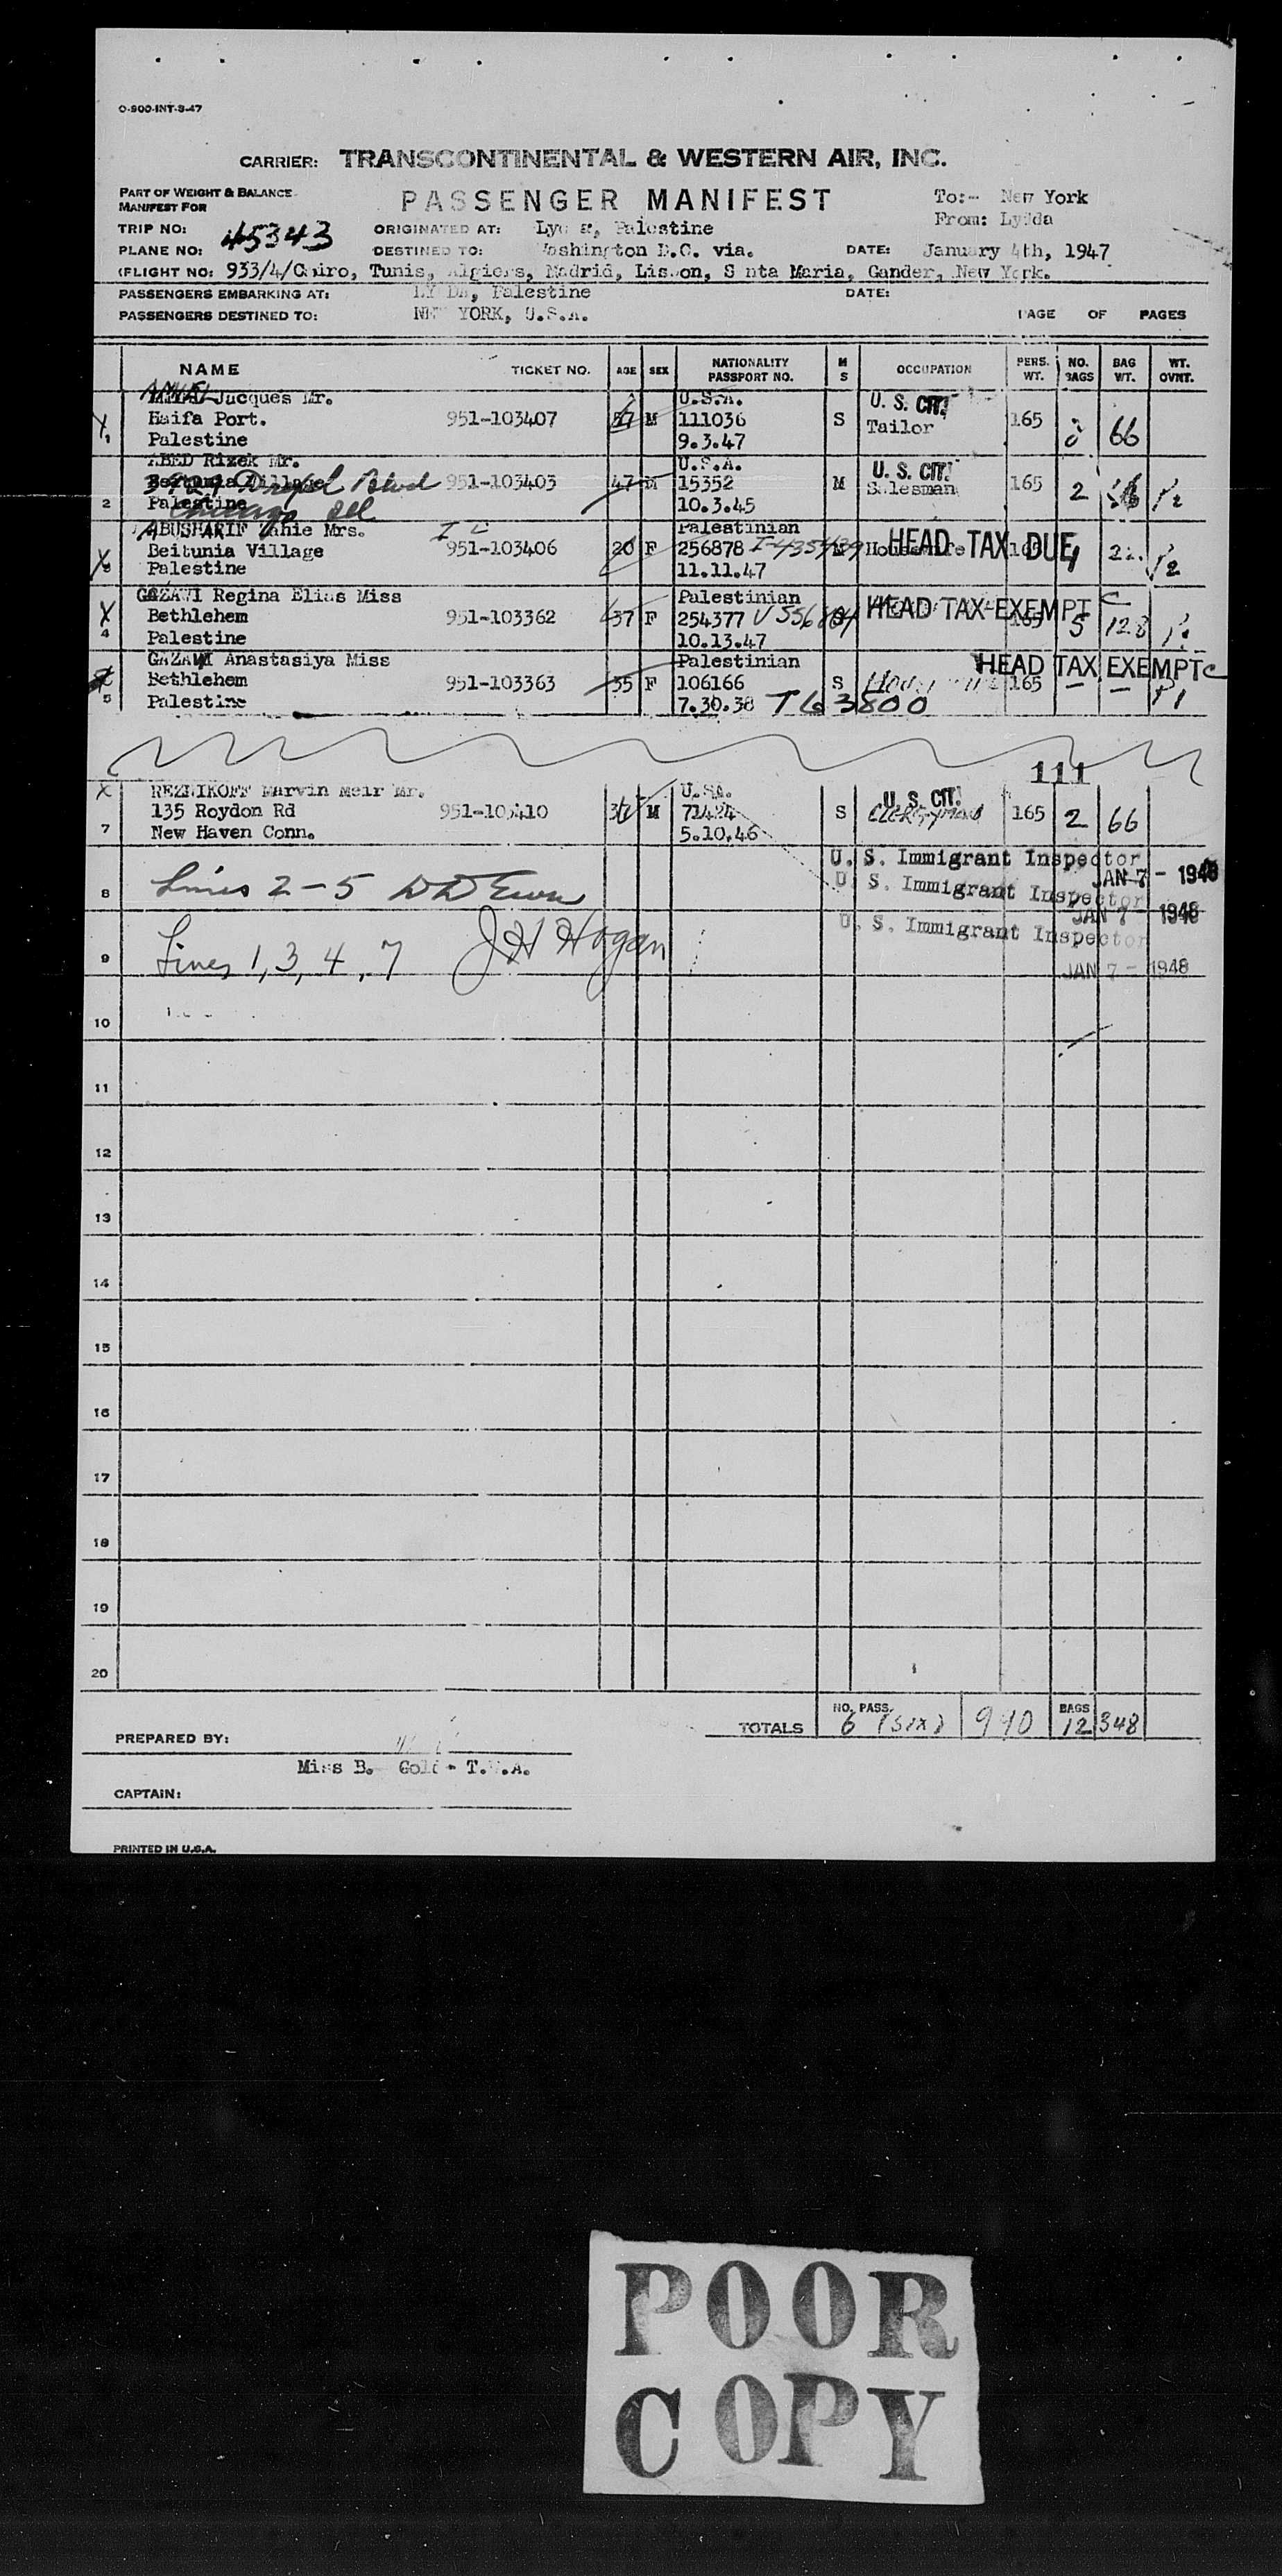 O-900-INT-8-47
CARRIER: TRANSCONTINENTAL & WESTERN AIR, INC.
PART OF WEIGHT & BALANCE
MANIFEST FOR
PASSENGER MANIFEST
To:- New York
From: Lydda
TRIP NO: 45343 ORIGINATED AT: Lydda, Palestine
PLANE NO: DESTINED TO: Washington D.C. via. DATE: January 4th, 1947
(FLIGHT NO: 933/4/Cairo, Tunis, Algiers, Madrid, Lisbon, Santa Maria, Gander, New York.
PASSENGERS EMBARKING AT: LYDDA, Palestine DATE:
PASSENGERS DESTINED TO: NEW YORK, U.S.A. PAGE OF PAGES
NAME TICKET NO. AGE SEX NATIONALITY PASSPORT NO. M S OCCUPATION PERS. WT. NO. BAGS BAG WT. WT. OVNT.
Jacques Mr. U.S.A. U. S. CIT.
X 1 Haifa Port. 951-103407 57 M 111036 S Tailor 165 66
Palestine 9.3.47
ABED Rizek Mr. U.S.A. U. S. CIT.
Beitunia Village Drexel Blvd 951-103403 47 M 15352 M Salesman 165 2
2 Palestine Chicago Ill 10.3.45
ABUSHARIF Zahie Mrs. Palestinian HEAD TAX DUE
X Beitunia Village 951-103406 20 F 256878 M Housewife
Palestine 11.11.47
GAZAWI Regina Elias Miss Palestinian HEAD TAX EXEMPT C
X Bethlehem 951-103362 37 F 254377 165 5 128
4 Palestine 10.13.47
GAZAWI Anastasiya Miss Palestinian HEAD TAX EXEMPT C
Bethlehem 951-103363 35 F 106166 S 165 — —
5 Palestine 7.30.38 T 63800
111
X REZNIKOFF Marvin Meir Mr. U.SA. U. S. CIT.
135 Roydon Rd M 71424 S Clergyman 165 2 66
7 New Haven Conn. 5.10.46
U. S. Immigrant Inspector
JAN 7 - 1948
8 Lines 2-5
U. S. Immigrant Inspector
JAN 7 - 1948
9 Lines 1, 3, 4, 7 J H Hogan
U. S. Immigrant Inspector
JAN 7 - 1948
10
11
12
13
14
15
16
17
18
19
20
TOTALS NO. PASS. 6 (SIX) 990 BAGS 12 348
PREPARED BY:
Miss B. Gold - T.W.A.
CAPTAIN:
PRINTED IN U.S.A.
POOR
COPY